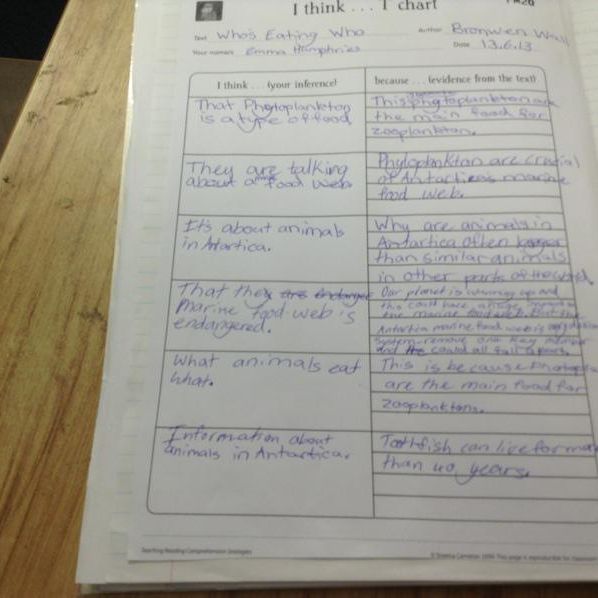 I think . . . T chart
Text Who's Eating Who Author Bronwen Wall
Your name/s Emma Humphries Date 13.6.13
I think . . . (your inference)
because . . . (evidence from the text)
That Phytoplankton
is a type of food
This phytoplankton are
the main food for
zooplankton.
They are talking
about a food web.
Phytoplankton are crucial
of Antartica's marine
food web.
It's about animals
in Antartica.
Why are animals in
Antartica often bigger
than similar animals
in other parts of the world.
That they are endanger
Marine food web is
endangered.
Our planet is warming up and
this could have a huge impact on
the marine food web. But the
Antartica marine food web is
system remove one key member
and it could all fall apart.
What animals eat
what.
This is because
are the main food for
zooplanktons.
Information about
animals in Antartica.
Toothfish can live for more
than 40 years.
Teaching Reading Comprehension Strategies